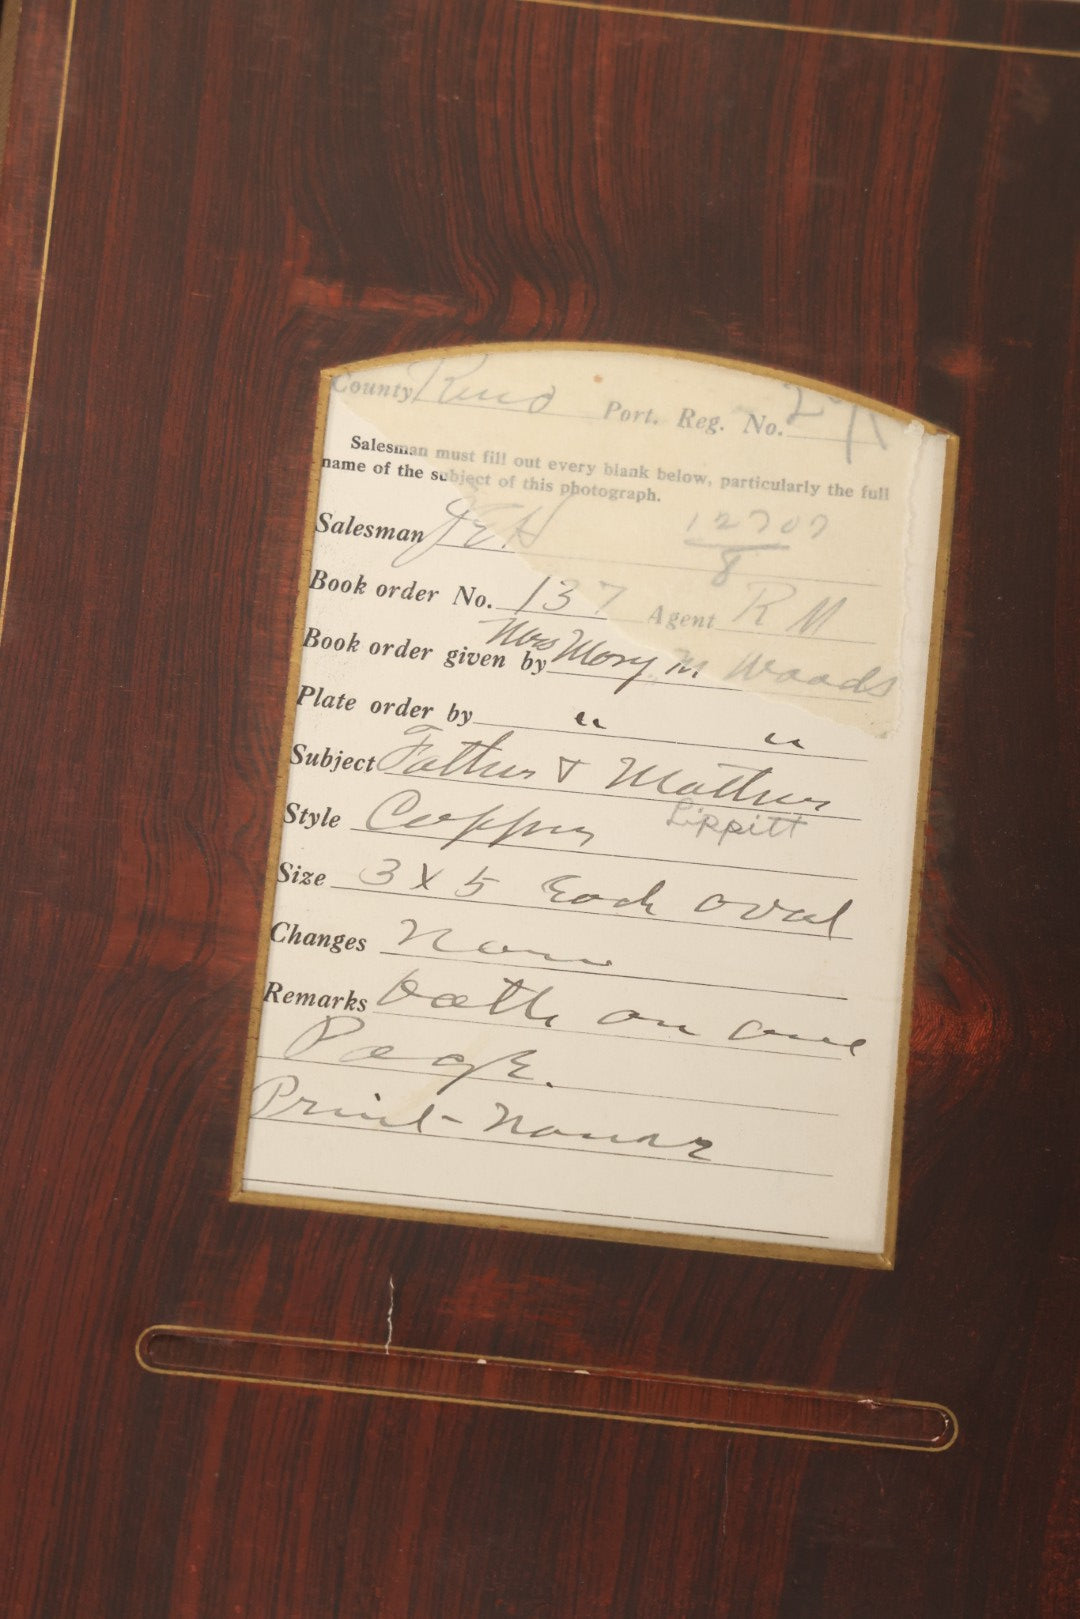 County Reno Port. Reg. No.
Salesman must fill out every blank below, particularly the full
name of the subject of this photograph.
12707
8
Salesman J.E.H
Book order No. 137 Agent R M
Book order given by Mrs Mary M Woods
Plate order by " "
Subject Father & Mother
Lippitt
Style Copper
Size 3 x 5 Each oval
Changes None
Remarks both on one
Page.
Print-